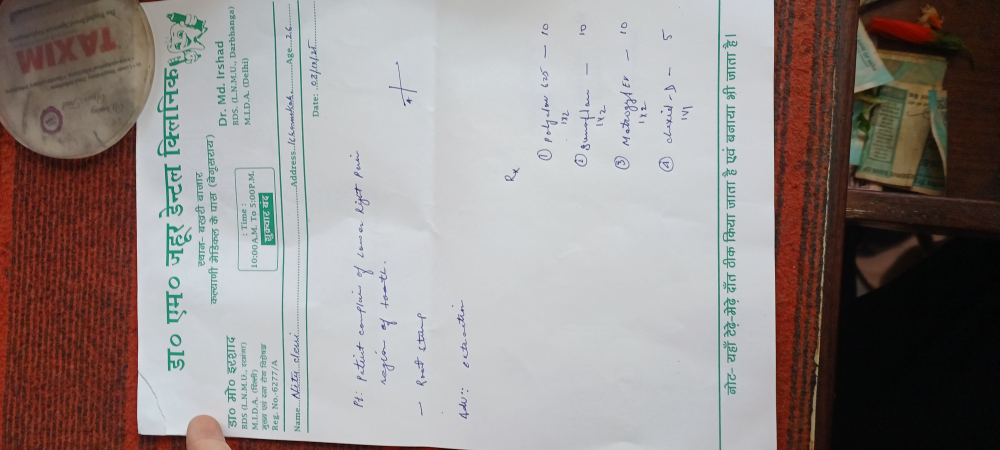 डा० एम० जहूर डेन्टल क्लिनिक
स्थान- बखरी बाजार
कल्याणी मेडिकल के पास (बेगूसराय)
डा० मो० इरशाद
BDS (L.N.M.U., दरभंगा)
M.I.D.A. (दिल्ली)
मुख एवं दन्त रोग विशेषज्ञ
Reg. No.-6277/A
: Time :
10:00A.M. To 5:00P.M.
शुक्रवार बंद
Dr. Md. Irshad
BDS. (L.N.M.U., Darbhanga)
M.I.D.A. (Delhi)
Name Nitu devi Address Age 26
Date:
Pt: Patient complain of lower Right Pain
region of tooth.
→ Root stump
Adv:: extraction
Rx
① Polyclav 625 – 10
1x2
② – 10
1x2
③ – 10
1x2
④ – 5
1x1
नोट- यहाँ टेढ़े-मेढ़े दाँत ठीक किया जाता है एवं बनाया भी जाता है।
TAXIM